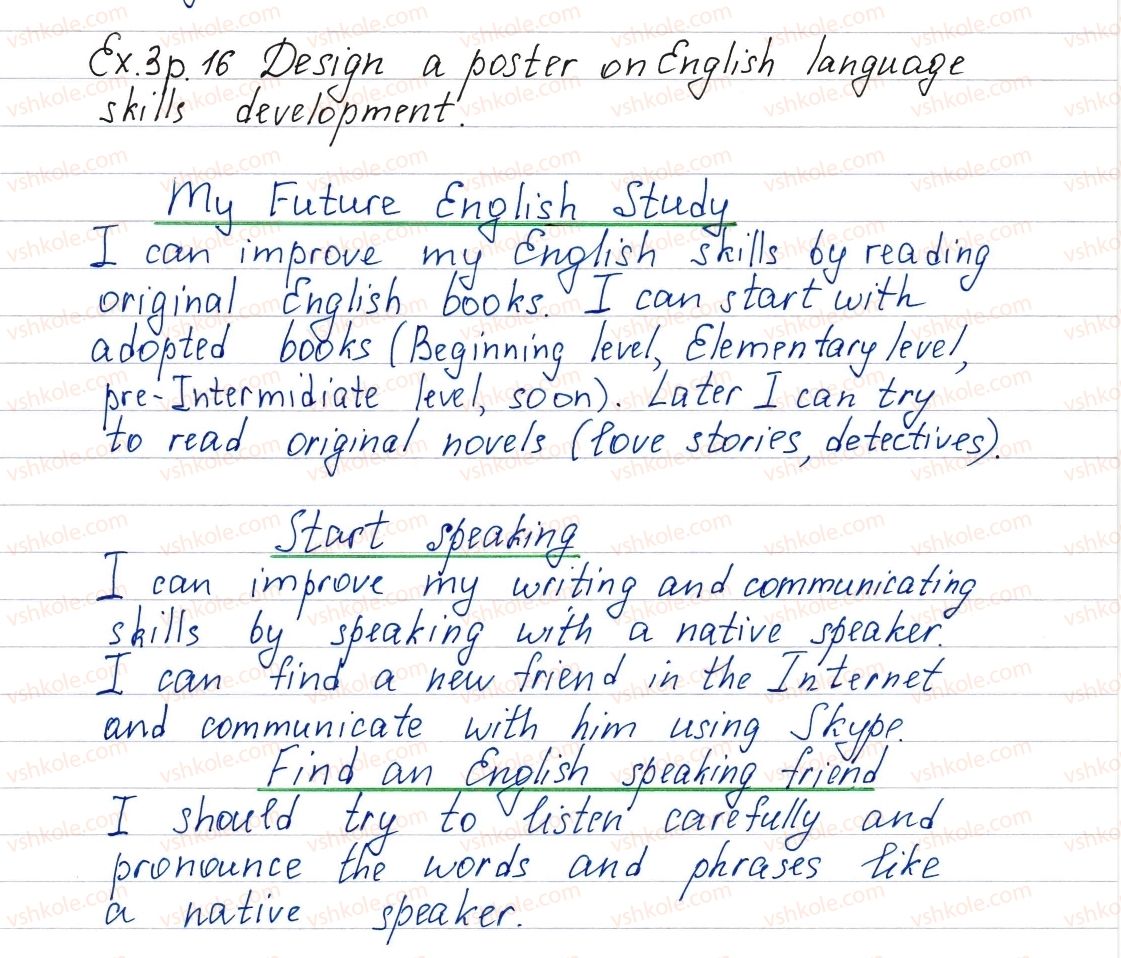 Ex.3p.16 Design a poster on English language
skills development.
My Future English Study
I can improve my English skills by reading
original English books. I can start with
adopted books (Beginning level, Elementary level,
pre-Intermidiate level, soon). Later I can try
to read original novels (love stories, detectives).
Start speaking
I can improve my writing and communicating
skills by speaking with a native speaker.
I can find a new friend in the Internet
and communicate with him using Skype.
Find an English speaking friend
I should try to listen carefully and
pronounce the words and phrases like
a native speaker.
vshkole.com